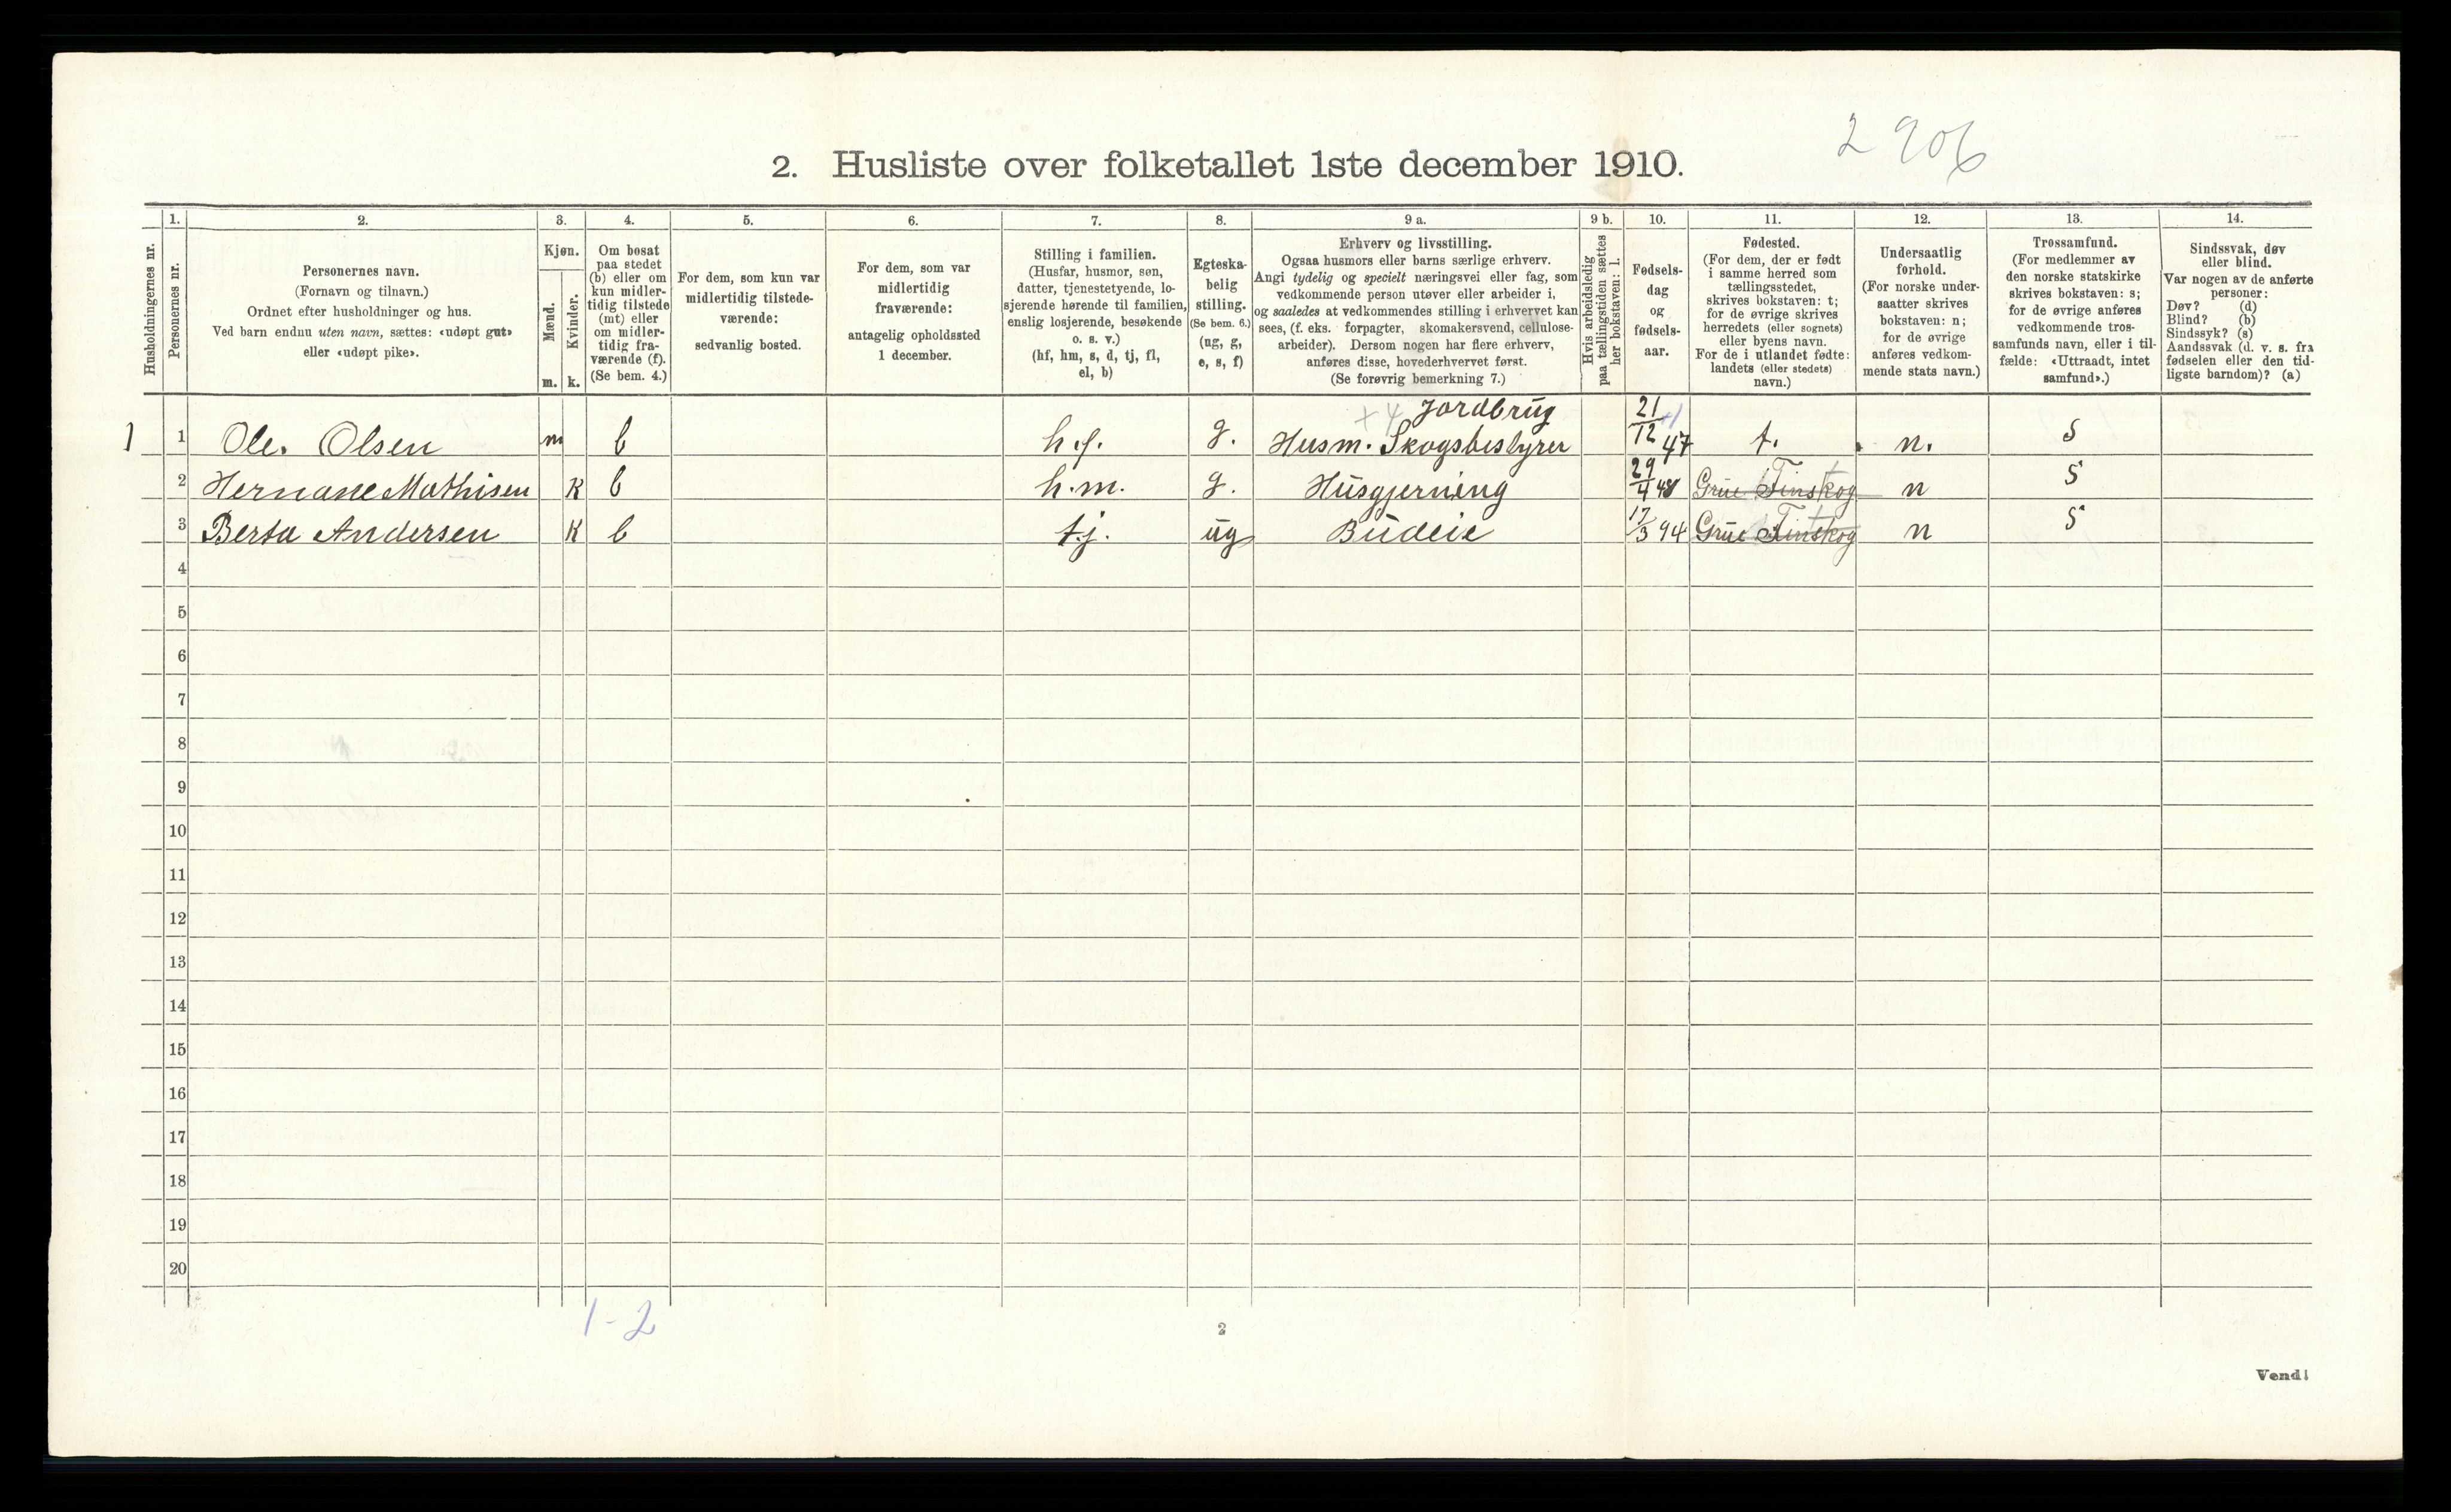 2 906
2. Husliste over folketallet 1ste december 1910.
1. 2. 3. 4. 5. 6. 7. 8. 9 a. 9 b. 10. 11. 12. 13. 14.
Husholdningernes nr.
Personernes nr.
Personernes navn.
(Fornavn og tilnavn.)
Ordnet efter husholdninger og hus.
Ved barn endnu uten navn, sættes: «udøpt gut»
eller «udøpt pike».
Kjøn.
Mænd.
Kvinder.
m. k.
Om bosat
paa stedet
(b) eller om
kun midler-
tidig tilstede
(mt) eller
om midler-
tidig fra-
værende (f).
(Se bem. 4.)
For dem, som kun var
midlertidig tilstede-
værende:
sedvanlig bosted.
For dem, som var
midlertidig
fraværende:
antagelig opholdssted
1 december.
Stilling i familien.
(Husfar, husmor, søn,
datter, tjenestetyende, lo-
sjerende hørende til familien,
enslig losjerende, besøkende
o. s. v.)
(hf, hm, s, d, tj, fl,
el, b)
Egteska-
belig
stilling.
(Se bem. 6.)
(ug, g,
e, s, f)
Erhverv og livsstilling.
Ogsaa husmors eller barns særlige erhverv.
Angi tydelig og specielt næringsvei eller fag, som
vedkommende person utøver eller arbeider i,
og saaledes at vedkommendes stilling i erhvervet kan
sees, (f. eks. forpagter, skomakersvend, cellulose-
arbeider). Dersom nogen har flere erhverv,
anføres disse, hovederhvervet først.
(Se forøvrig bemerkning 7.)
Hvis arbeidsledig
paa tællingstiden sættes
her bokstaven: l.
Fødsels-
dag
og
fødsels-
aar.
Fødested.
(For dem, der er født
i samme herred som
tællingsstedet,
skrives bokstaven: t;
for de øvrige skrives
herredets (eller sognets)
eller byens navn.
For de i utlandet fødte:
landets (eller stedets)
navn.)
Undersaatlig
forhold.
(For norske under-
saatter skrives
bokstaven: n;
for de øvrige
anføres vedkom-
mende stats navn.)
Trossamfund.
(For medlemmer av
den norske statskirke
skrives bokstaven: s;
for de øvrige anføres
vedkommende tros-
samfunds navn, eller i til-
fælde: «Uttraadt, intet
samfund».)
Sindssvak, døv
eller blind.
Var nogen av de anførte
personer:
Døv? (d)
Blind? (b)
Sindssyk? (s)
Aandssvak (d. v. s. fra
fødselen eller den tid-
ligste barndom)? (a)
+4 Jordbrug
1 1 Ole. Olsen m b h.f. g. Husm. Skogsbestyrer 21/12 47 t. n. s
2 Hernane Mathisen K b h.m. g. Husgjerning 29/4 48 Grue Finskog n s
3 Berta Andersen K b tj. ug Budeie 17/3 94 Grue Finskog n s
4
5
6
7
8
9
10
11
12
13
14
15
16
17
18
19
20
1-2
2
Vend!